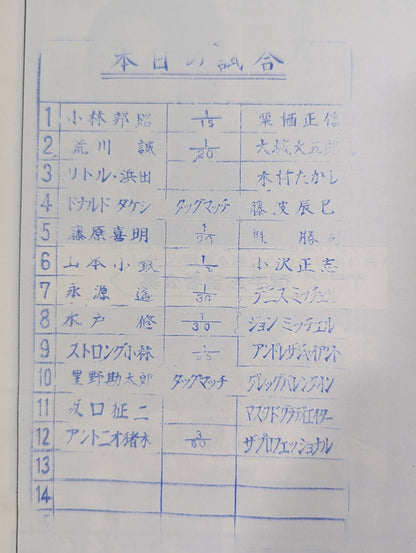 本日の試合
1 小林邦昭 1/15 栗栖正信
2 荒川 誠 1/20 大城大五郎
3 リトル・浜田 木村たかし
4 ドナルド タケシ タッグマッチ 藤波辰巳
5 藤原喜明 1/20 勝
6 山本小鉄 小沢正志
7 永源 遙 1/30 デニスミッチェル
8 木戸 修 1/30 ジョンミッチェル
9 ストロング小林 アンドレザジャイアント
10 星野勘太郎 タッグマッチ グレッグバレンタイン
11 坂口征二 マスクドグラジエイター
12 アントニオ猪木 3/60 ザプロフェッショナル
13
14